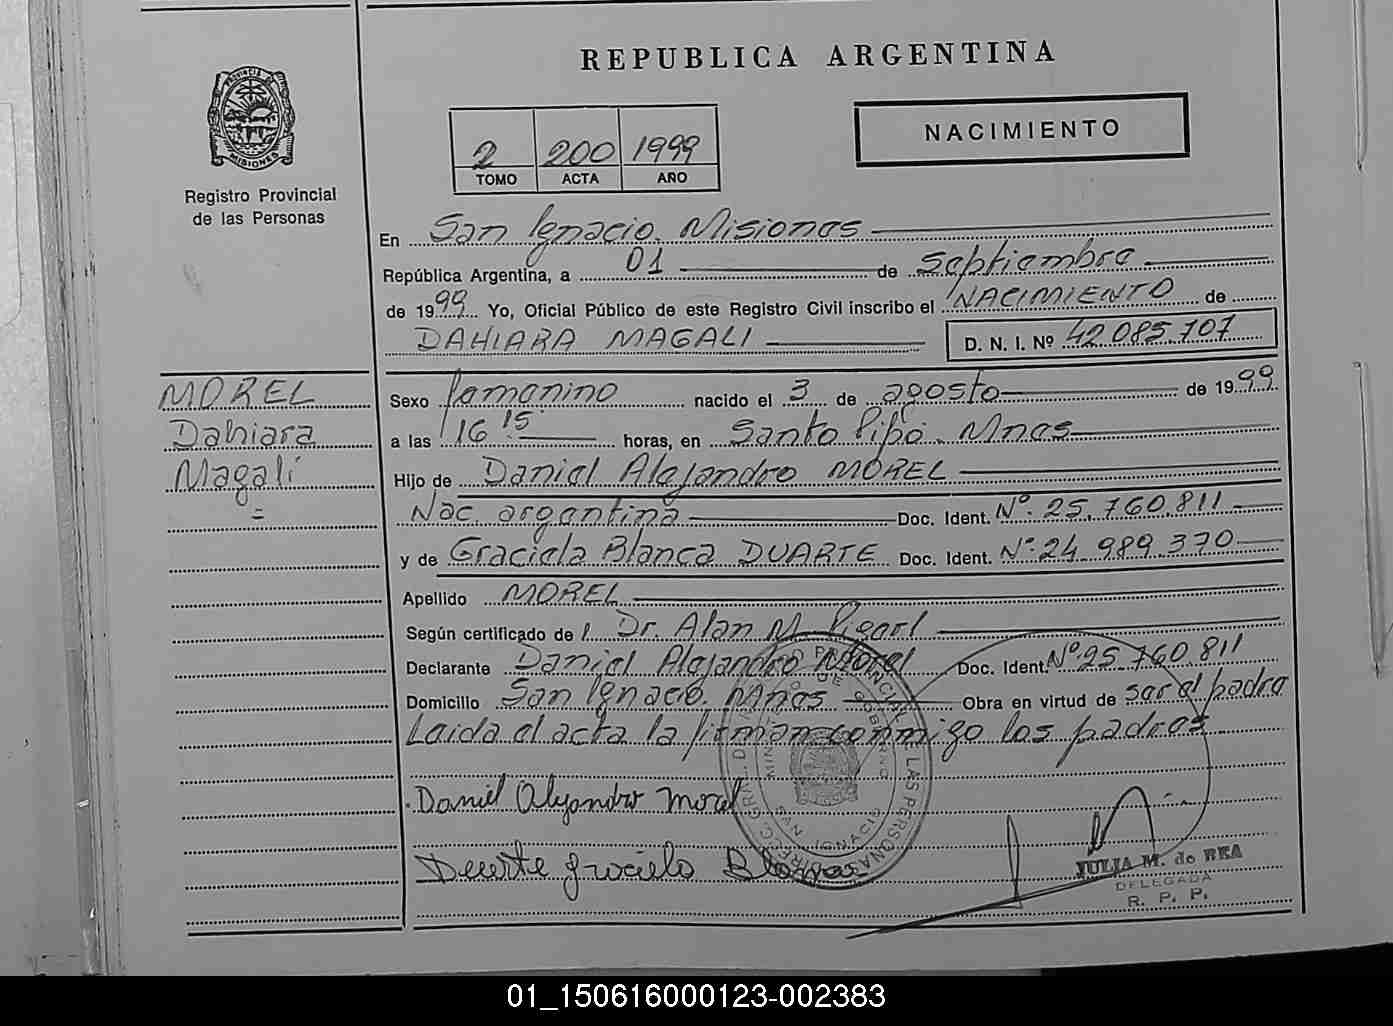 REPUBLICA ARGENTINA
PROVINCIA DE
MISIONES
Registro Provincial
de las Personas
2 200 1999
TOMO ACTA AÑO
NACIMIENTO
En San Ignacio. Misiones
República Argentina, a 01 de septiembre
de 1999 Yo, Oficial Público de este Registro Civil inscribo el NACIMIENTO de
DAHIARA MAGALI D. N. I. Nº 42.085.707
MOREL
Dahiara
Magalí
=
Sexo femenino nacido el 3 de agosto de 1999
a las 16:15 horas, en Santo Pipó. Mnes
Hijo de Daniel Alejandro MOREL
Nac. argentina Doc. Ident. Nº. 25.760.811
y de Graciela Blanca DUARTE Doc. Ident. Nº. 24.989.370
Apellido MOREL
Según certificado de l Dr. Alan M.
Declarante Daniel Alejandro Morel Doc. Ident. Nº 25.760.811
Domicilio San Ignacio. Mnes Obra en virtud de ser el padre
Leida el acta la firman conmigo los padres
Daniel Alejandro Morel
Duarte Graciela Blanca
SAN IGNACIO
JULIA M. de REA
DELEGADA
R. P. P.
01_150616000123-002383